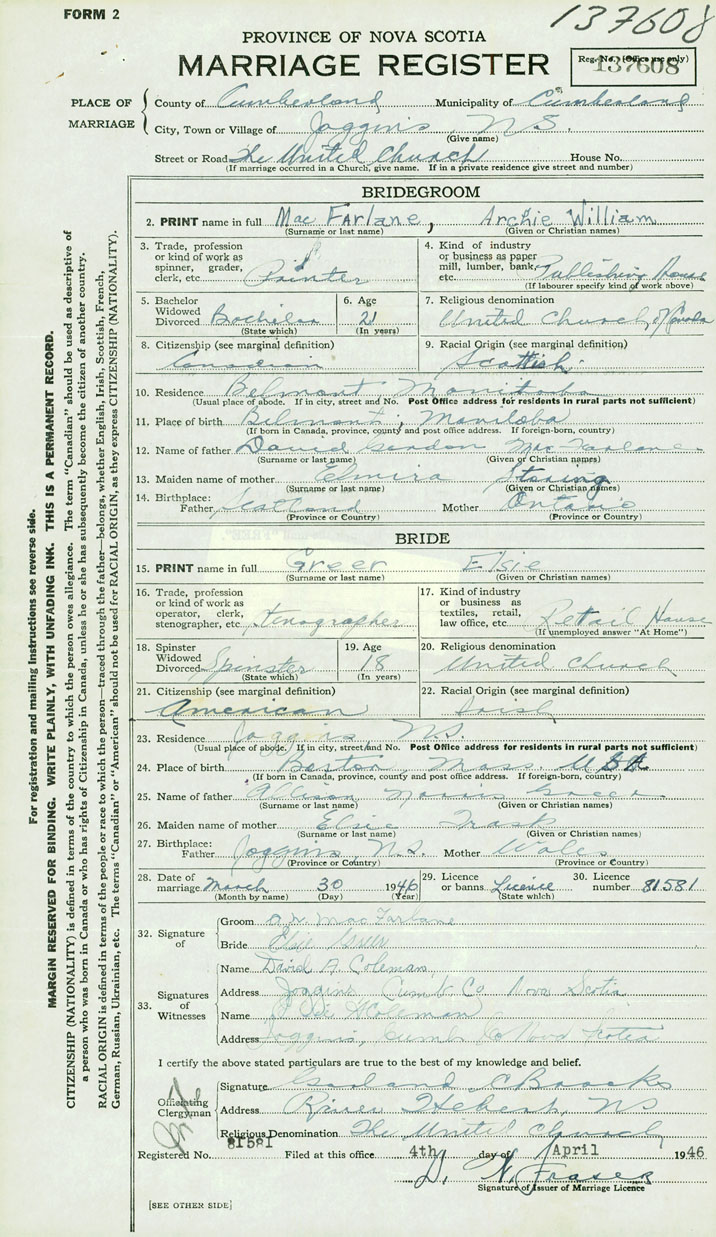 FORM 2
137608
PROVINCE OF NOVA SCOTIA
MARRIAGE REGISTER
Reg. No. (Office use only)
137608
PLACE OF MARRIAGE
County of Cumberland Municipality of Cumberland
City, Town or Village of Joggins, N.S.
(Give name)
Street or Road The United Church House No.
(If marriage occurred in a Church, give name. If in a private residence give street and number)
BRIDEGROOM
2. PRINT name in full MacFarlane, Archie William
(Surname or last name) (Given or Christian names)
3. Trade, profession or kind of work as spinner, grader, clerk, etc.
4. Kind of industry or business as paper mill, lumber, bank, etc. Publishing House
(If labourer specify kind of work above)
5. Bachelor Widowed Divorced Bachelor
(State which)
6. Age 21
(In years)
7. Religious denomination
United Church of Canada
8. Citizenship (see marginal definition)
Canadian
9. Racial Origin (see marginal definition)
Scottish
10. Residence Belmont Manitoba
(Usual place of abode. If in city, street and No. Post Office address for residents in rural parts not sufficient)
11. Place of birth Belmont, Manitoba
(If born in Canada, province, county and post office address. If foreign-born, country)
12. Name of father David Gordon MacFarlane
(Surname or last name) (Given or Christian names)
13. Maiden name of mother Elmira
(Surname or last name) (Given or Christian names)
14. Birthplace: Father Scotland Mother Ontario
(Province or Country) (Province or Country)
BRIDE
15. PRINT name in full Greer Elsie
(Surname or last name) (Given or Christian names)
16. Trade, profession or kind of work as operator, clerk, stenographer, etc. Stenographer
17. Kind of industry or business as textiles, retail, law office, etc. Retail House
(If unemployed answer "At Home")
18. Spinster Widowed Divorced Spinster
(State which)
19. Age 18
(In years)
20. Religious denomination
United Church
21. Citizenship (see marginal definition)
American
22. Racial Origin (see marginal definition)
Irish
23. Residence Joggins, N.S.
(Usual place of abode. If in city, street and No. Post Office address for residents in rural parts not sufficient)
24. Place of birth Boston Mass. USA
(If born in Canada, province, county and post office address. If foreign-born, country)
25. Name of father Allison Norris Greer
(Surname or last name) (Given or Christian names)
26. Maiden name of mother Elsie Trask
(Surname or last name) (Given or Christian names)
27. Birthplace: Father Joggins, N.S. Mother Wales
(Province or Country) (Province or Country)
28. Date of marriage March 30 1946
(Month by name) (Day) (Year)
29. Licence or banns Licence
(State which)
30. Licence number 81581
32. Signature of
Groom A.W. MacFarlane
Bride Elsie Greer
33. Signatures of Witnesses
Name David A. Coleman
Address Joggins, Cumb. Co. Nova Scotia
Name Coleman
Address Joggins, Cumb Co Nova Scotia
I certify the above stated particulars are true to the best of my knowledge and belief.
Officiating Clergyman
Signature Garland C Brooks
Address River Hebert, NS
Religious Denomination The United Church
Registered No. 81581 Filed at this office 4th day of April 1946
D. N. Fraser
Signature of Issuer of Marriage Licence
[SEE OTHER SIDE]
For registration and mailing instructions see reverse side.
MARGIN RESERVED FOR BINDING. WRITE PLAINLY, WITH UNFADING INK. THIS IS A PERMANENT RECORD.
CITIZENSHIP (NATIONALITY) is defined in terms of the country to which the person owes allegiance. The term "Canadian" should be used as descriptive of
a person who was born in Canada or who has rights of Citizenship in Canada, unless he or she has subsequently become the citizen of another country.
RACIAL ORIGIN is defined in terms of the people or race to which the person—traced through the father—belongs, whether English, Irish, Scottish, French,
German, Russian, Ukrainian, etc. The terms "Canadian" or "American" should not be used for RACIAL ORIGIN, as they express CITIZENSHIP (NATIONALITY).